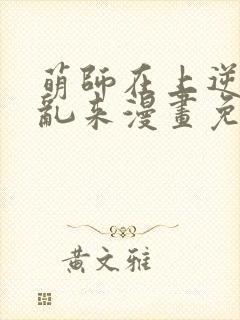 萌師在上逆
亂來漫畫免
黃文雅